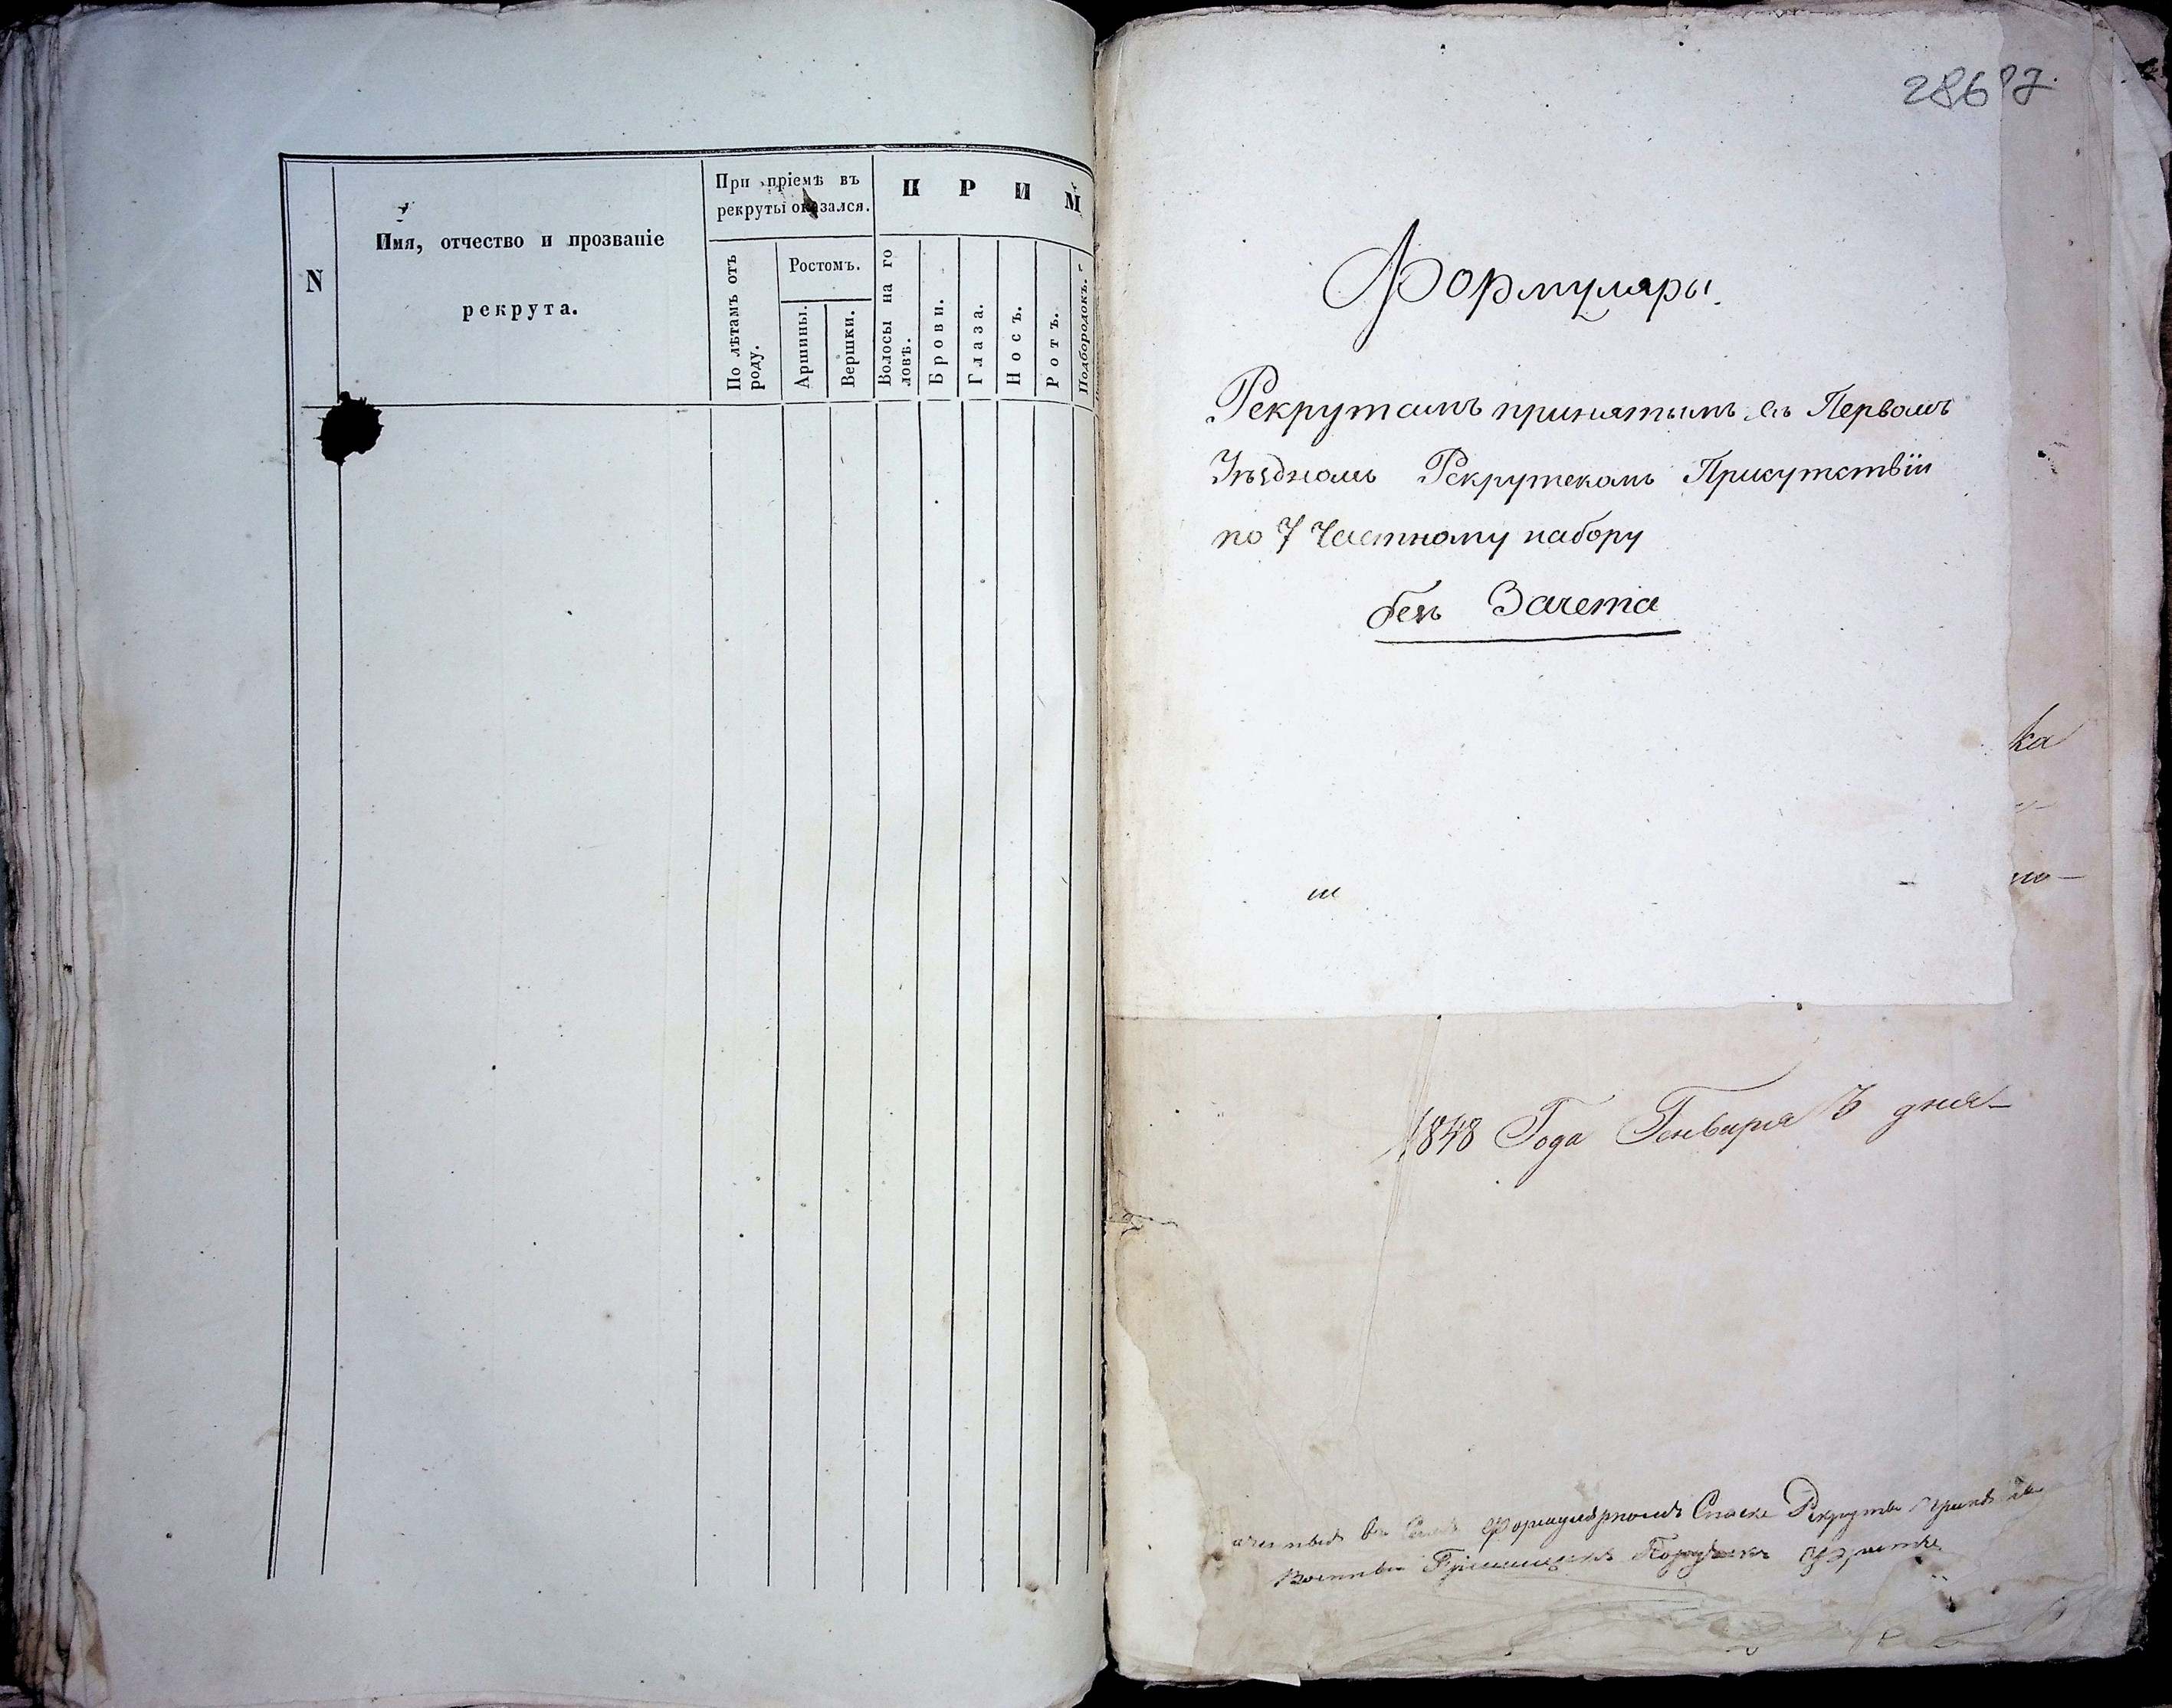 N
Имя, отчество и прозваніе
рекрута.
При пріемѣ въ
рекруты оказался.
По лѣтамъ отъ
роду.
Ростомъ.
Аршины.
Вершки.
П Р И М
Волосы на го
ловѣ.
Брови.
Глаза.
Носъ.
Ротъ.
Подбородокъ.
Формуляры.
Рекрутамъ принятымъ въ Первомъ
Уѣздномъ Рекрутскомъ Присутствіи
по 7 Частному набору
безъ Зачета
ка
но-
1848 Года Генваря дня
Формулярномъ Списке Рекруты
Военный Поручикъ